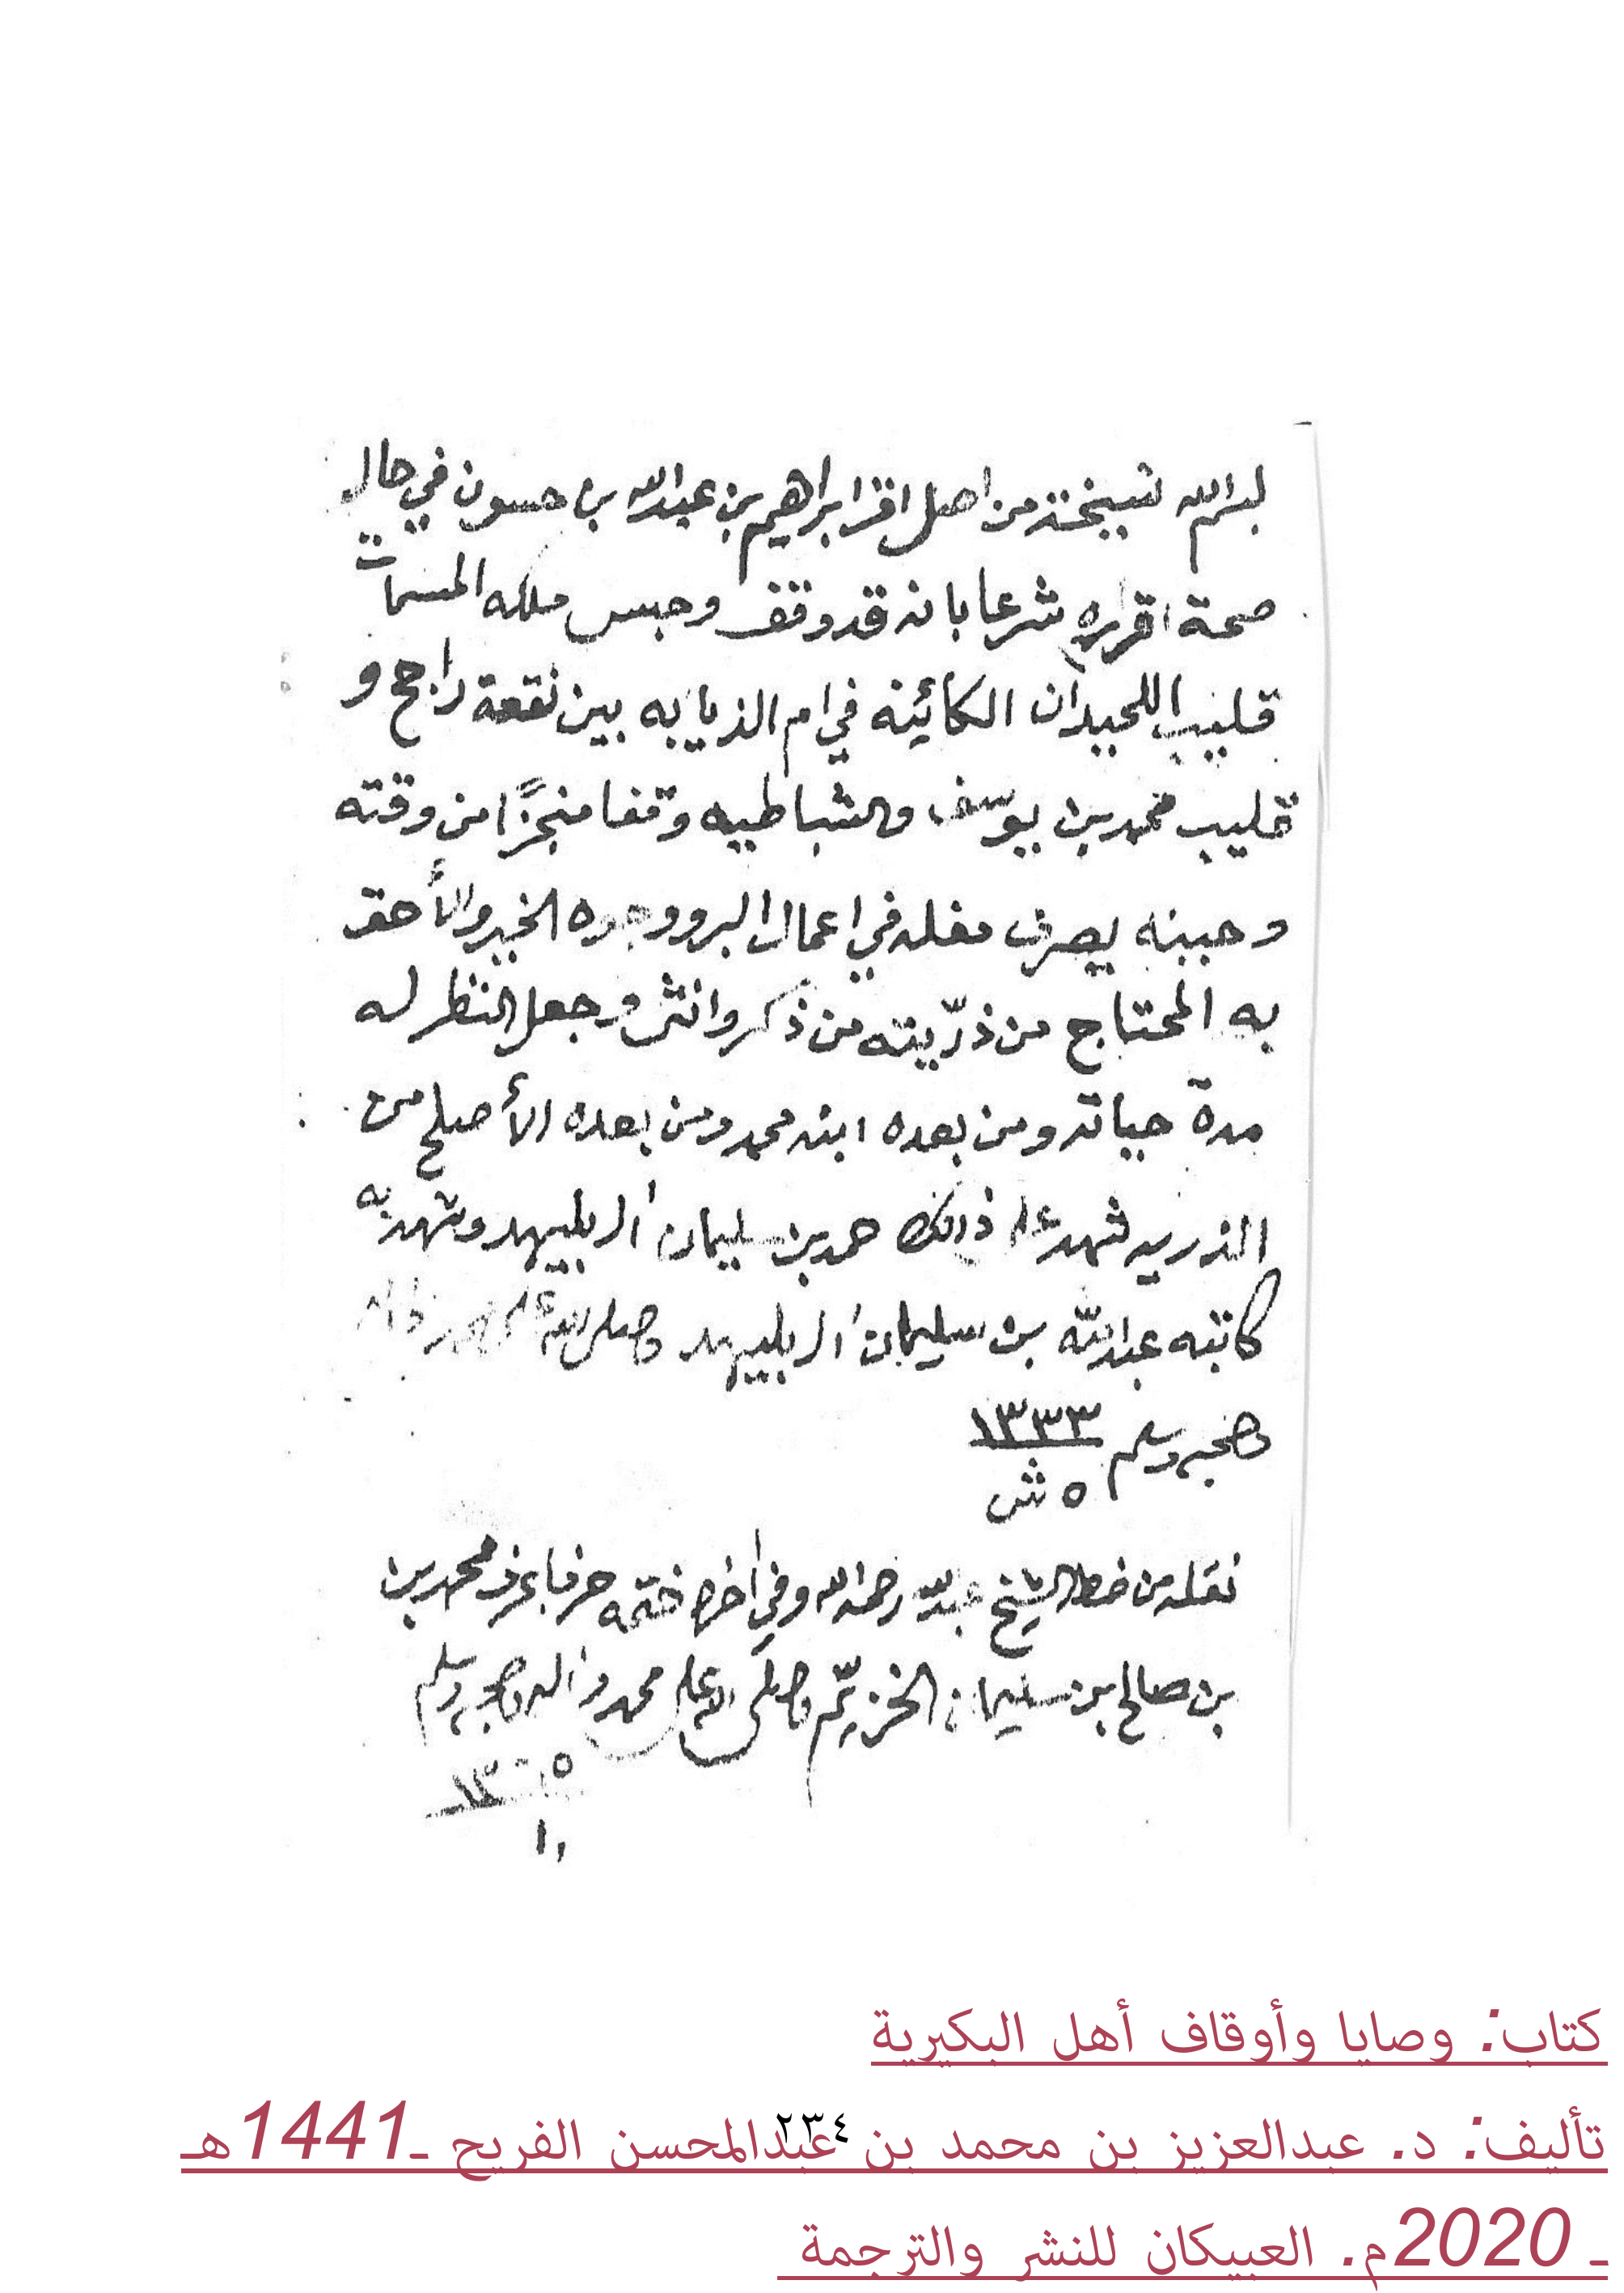 لبسم الله نسبخة من اصل اقر ابراهيم بن عبدالله بن حسون في حال
صحة اقراره شرعا بانه قد وقف وحبس ملكه المسمات
قليب اللحيدان الكائينه في ام الذيابه بين نقعة راجح و
قليب محمد بن يوسف والشباطيه وقفا منجزًا من وقته
وحينه يصرف مغله في اعمال البر ووجوه الخير والأحق
به المحتاج من ذرّيته من ذكر وانثى وجعل النظر له
مدة حياته ومن بعده ابنه محمد ومن بعده الأصلح من
الذريه شهد على ذالك حمد بن سليمان ال بليهد وشهد به
كاتبه عبدالله بن سليمان ال بليهد وصلى الله على محمد واله
وصحبه وسلم ١٣٣٣
٥ ش
نقله من خط الشيخ عبدالله رحمه الله وفي اخره ختمه حرفا بحرف محمد بن
بن صالح بن سليمان الخزيّم وصلى الله على محمد واله وصحبه وسلم
كتاب: وصايا وأوقاف أهل البكيرية
تأليف: د. عبدالعزيز بن محمد بن عبدالمحسن الفريح ـ1441هـ
٢٣٤
ـ 2020م. العبيكان للنشر والترجمة